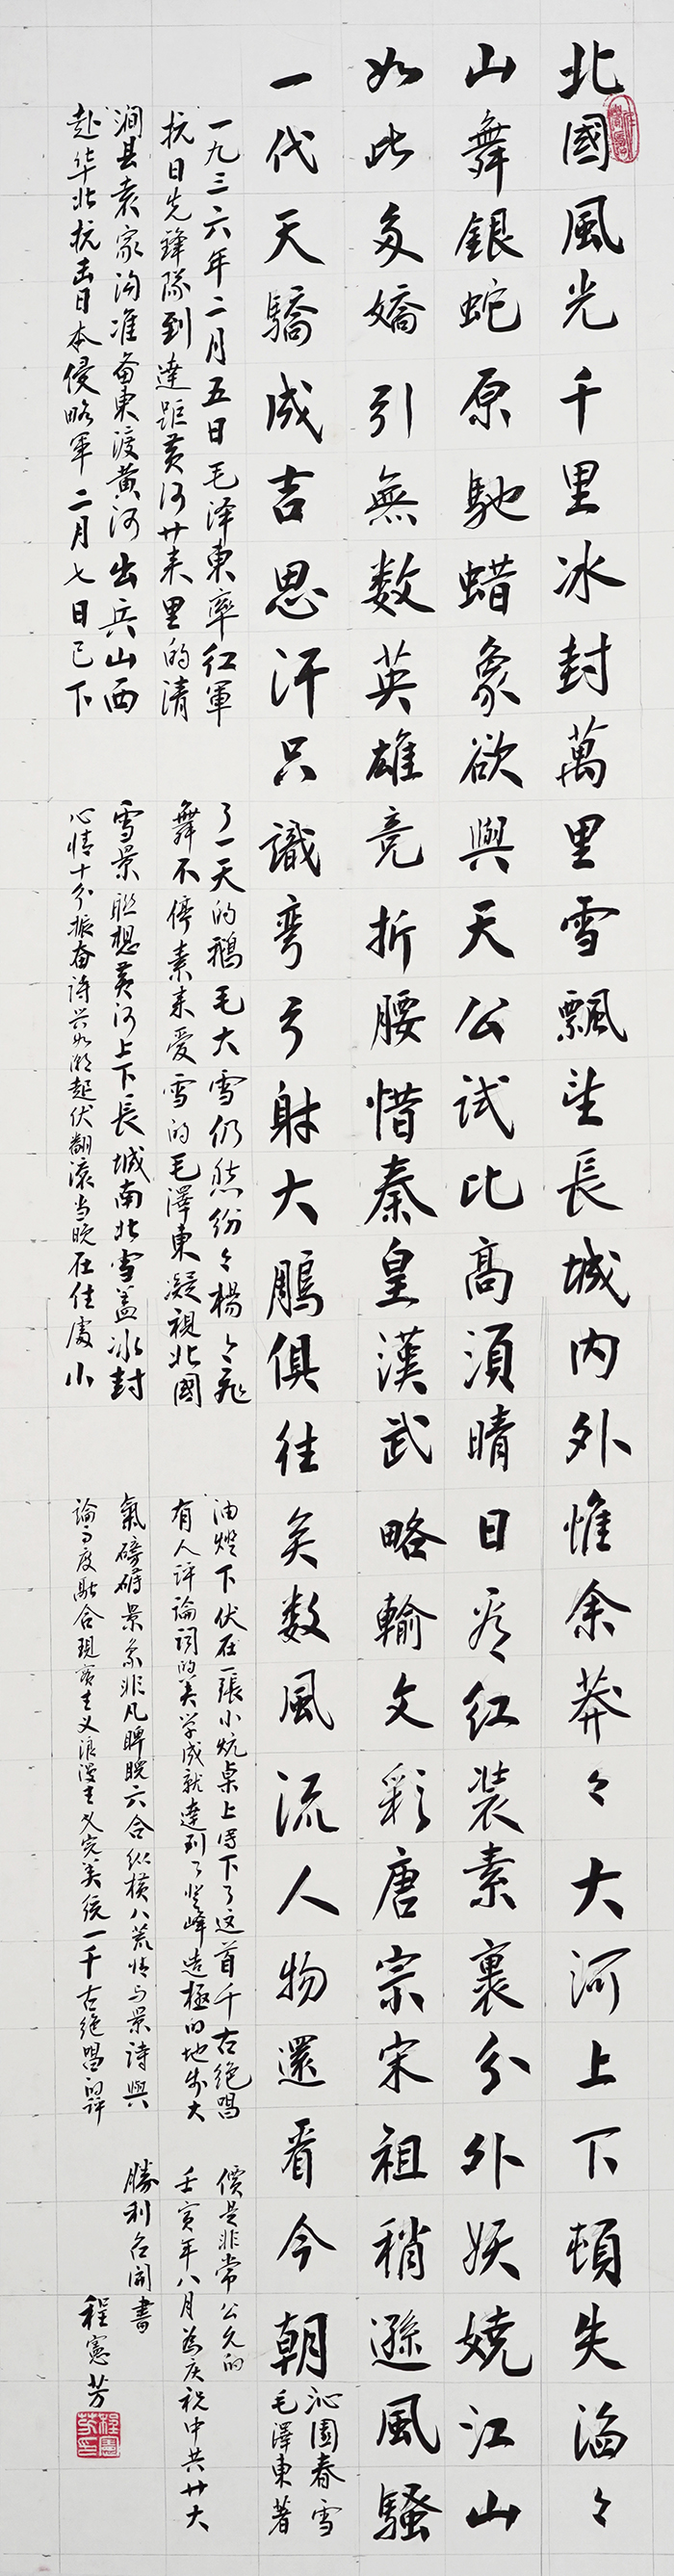 北國風光千里冰封萬里雪飄望長城内外惟余莽々大河上下頓失滔々
山舞銀蛇原馳蜡象欲與天公試比高須晴日看红装素裹分外妖嬈江山
如此多嬌引無数英雄竞折腰惜秦皇漢武略輸文彩唐宗宋祖稍遜風騷
一代天驕成吉思汗只識彎弓射大鵰俱往矣数風流人物還看今朝
沁園春雪
毛澤東著
一九三六年二月五日毛泽東率红軍
抗日先鋒隊到達距黄河廿来里的清
涧县袁家沟准备東渡黄河出兵山西
赴华北抗击日本侵略軍二月七日已下
了一天的鹅毛大雪仍然纷々楊々飛
舞不停素来爱雪的毛澤東凝視北國
雪景联想黄河上下長城南北雪盖冰封
心情十分振奋诗兴如潮起伏翻滚当晚在住處小
油燈下伏在一張小炕桌上写下了这首千古绝唱
有人评論词的美学成就達到了登峰造極的地步大
氣磅礴景象非凡睥睨六合纵横八荒情与景詩與
論高度融合現實主义浪漫主义完美统一千古絶唱的评
價是非常公允的
壬寅年八月為庆祝中共廿大
勝利召開書
程憲芳